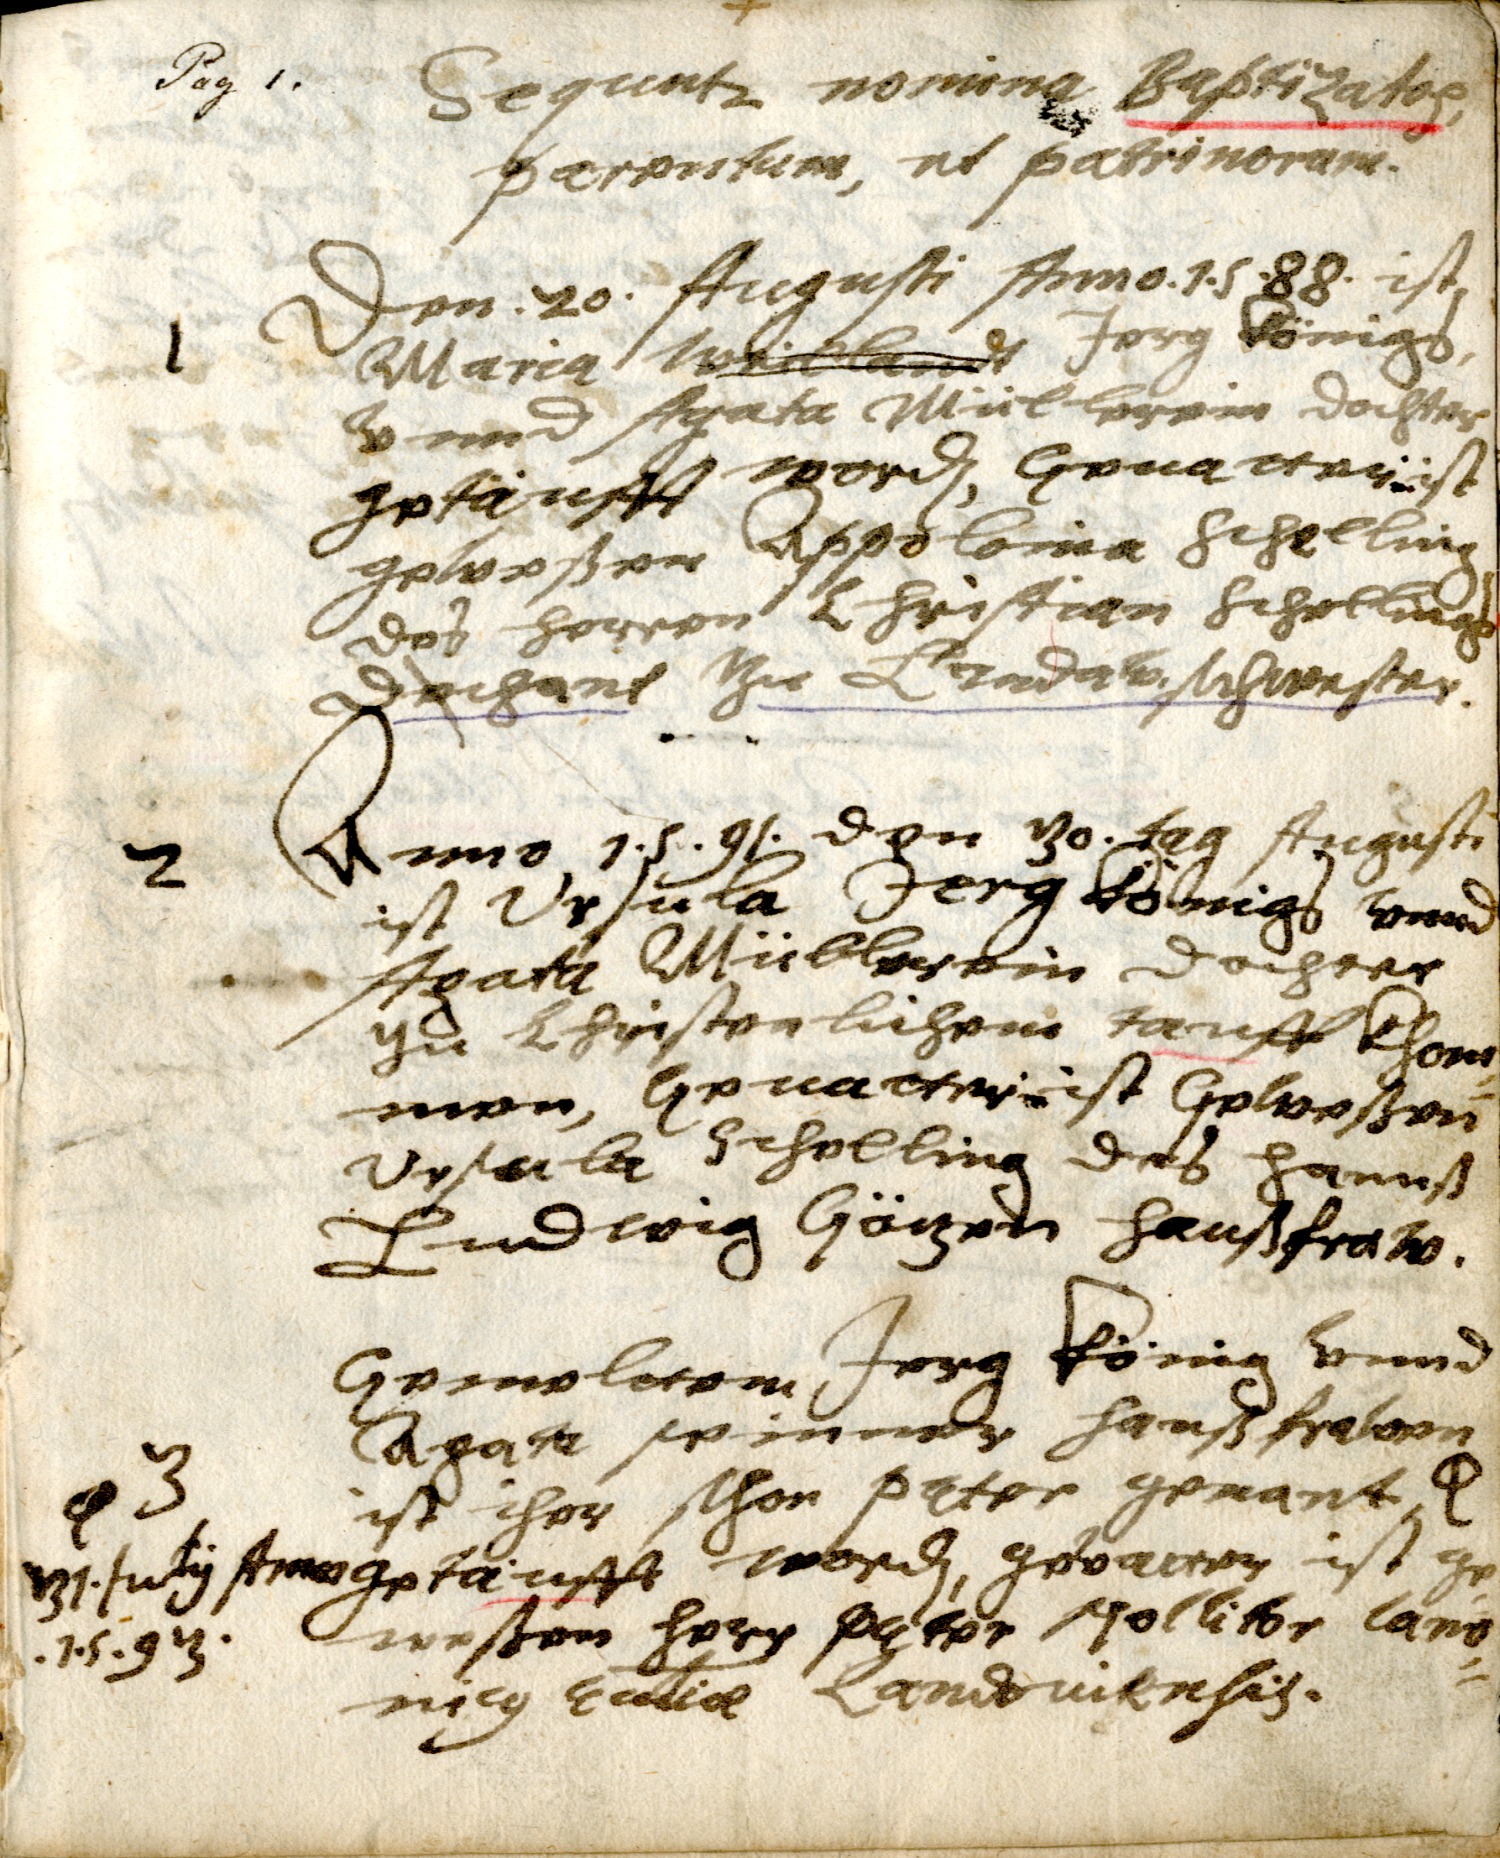 Pag 1.
Sequunt nomina Baptizator,
parentum, et patrinorum.
1
Den. 20. Augusti Anno. 1.5.88. ist
Maria weillandt Jerg Königs,
vnnd Agata Müllerein dochter
getäufft word, Geuatterin ist
geweßen Appolonia Schelling
des herren Christian Schellings
Dechant zu Lindaw schwester.
2
Anno 1.5.91. den 30. tag Augusti
ist Vrsula Jerg Königs vnnd
Agata Müllerein dochter
zu Christenlichem tauff khom-
men, Geuatterin ist Geweßen
Vrsula Schelling des hannß
Ludwig Götzen haußfraw.
Gemeltem Jerg König vnnd
Agata seinner haußfrawen
3
ist iher shon peter genant
31. July Anno
.1.5.93.
getäufft word, gevatter ist ge
weßen herr peter Mollitor